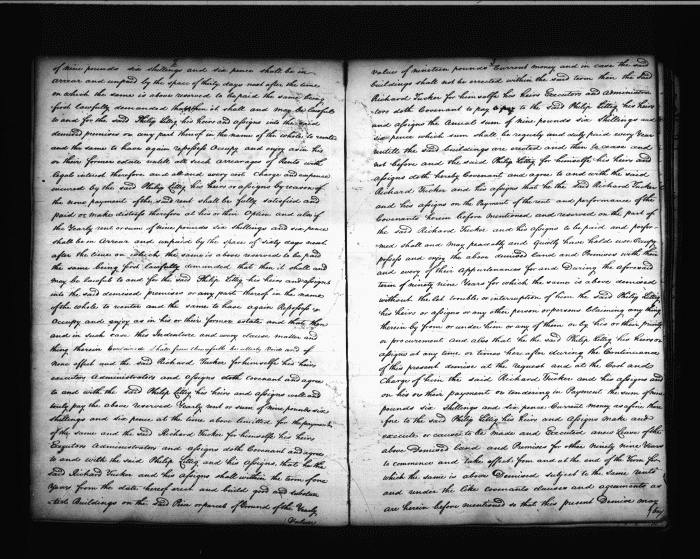 of nine pounds six shillings and six pence shall be in
arrear and unpaid by the space of thirty days next after the time
on which the same is above reserved to be paid the same being
first lawfully demanded that then it shall and may be lawful
to and for the said Philip Littig his heirs and assigns into the said
demised premises or any part thereof in the name of the whole to reenter
and the same to have again repossess Occupy and enjoy as in his
or their former estate untill all such arrearages of Rents with
legal interest therefore and all and every cost Charge and expence
incured by the said Philip Littig his heirs or assigns by reason of
the none payment of the said rent shall be fully satisfied and
paid or make distress therefore at his or their Option and also if
the Yearly rent or sum of nine pounds six shillings and six pence
shall be in Arrear and unpaid by the space of sixty days next
after the time on which the same is above reserved to be paid
the same being first lawfully demanded that then it shall and
may be lawful to and for the said Philip Littig his heirs and assigns
into the said demised premises or any part thereof in the name
of the whole to reenter and the same to have again Repossess
Occupy and enjoy as in his or their former estate and that then
and in such case this Indenture and every clause matter and
thing therein Contained shall from thenceforth be utterly Void and of
None effect and the said Richard Tucker for himselfe his heirs
executors Administrators and assigns doth covenant and agree
to and with the said Philip Littig his heirs and assigns well and
truly pay the above reserved Yearly rent or sum of nine pounds six
shillings and six pence at the time above limitted for the payment
of the same and the said Richard Tucker for himselfe his heirs
Executors Administrators and assigns doth Covenant and agree
to and with the said Philip Littig and his assigns, that he the
said Richard Tucker and his assigns shall within the term of one
Years from the date hereof erect and build good and substan
tial Buildings on the said Piece or parcel of Ground of the Yearly
Value
values of nineteen pounds Current money and in case the said
buildings shall not be erected within the said term then the said
Richard Tucker for himselfe his heirs Executors and administra
tors doth Covenant to pay to the said Philip Littig his heirs
and assigns the Anual sum of nine pounds six Shillings and
six pence which sum shall be regularly and duly paid every Year
untill the said buildings are erected and then to cease and
not before and the said Philip Littig for himselfe his heirs and
assigns doth hereby Covenant and agree to and with the said
Richard Tucker and his assigns that he the said Richard Tucker
and his assigns on the Payment of the rent and performance of the
Covenants herein before mentioned and reserved on the part of
the said Richard Tucker and his assigns to be paid and perfor
med shall and may peaceably and Quietly have hold use Occupy
possess and enjoy the above demised land and Premises with them
and every of their Appurtenances for and During the aforesaid
term of ninety nine Years for which the same is above demised
without the let trouble or interruption of him the said Philip Littig
his heirs or assigns or any other person or persons Claiming any thing
therein by from or under him or any of them or by his or their privity
or procurement and also that he the said Philip Littig his heirs or
assigns at any time or times here after during the Continuance
of this present demise at the request and at the Cost and
Charge of him the said Richard Tucker and his assigns and
on his or their payment or tendering in Payment the sum of nine
pounds six Shillings and six pence Current money as a fine there
fore to the said Philip Littig his heirs and assigns make and
execute or cause to be made and Executed Anew Lease of the
above Demised land and Premises for other ninety nine Years
to commence and take effect from and at the end of the term for
which the same is above Demised subject to the same rents
and under the like covenants clauses and agreements as
are herein before mentioned so that this present Demise may